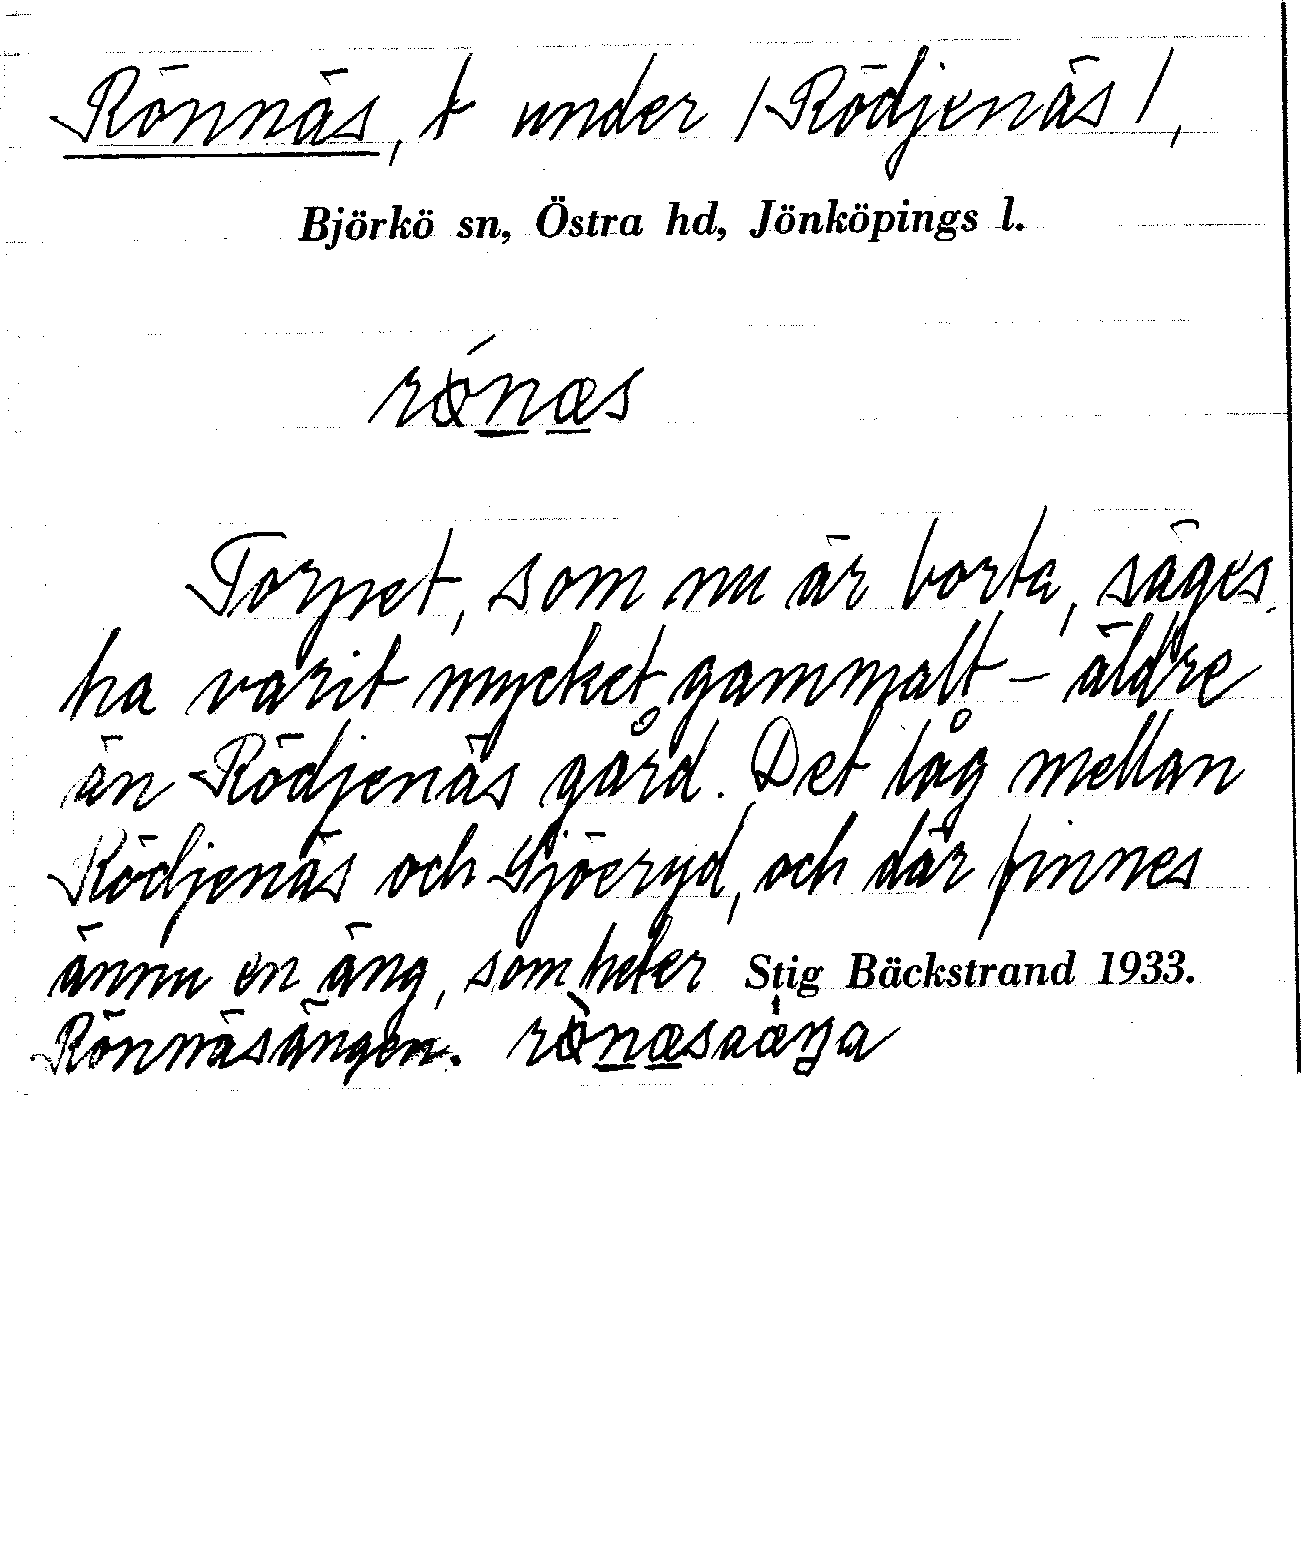 Rönnäs, t under /Rödjenäs/,
Björkö sn, Östra hd, Jönköpings l.
Torpet, som nu är borta, säges
ha varit mycket gammalt – äldre
än Rödjenäs gård. Det låg mellan
Rödjenäs och Sjöeryd, och där finnes
ännu en äng, som heter Stig Bäckstrand 1933.
Rönnäsängen.